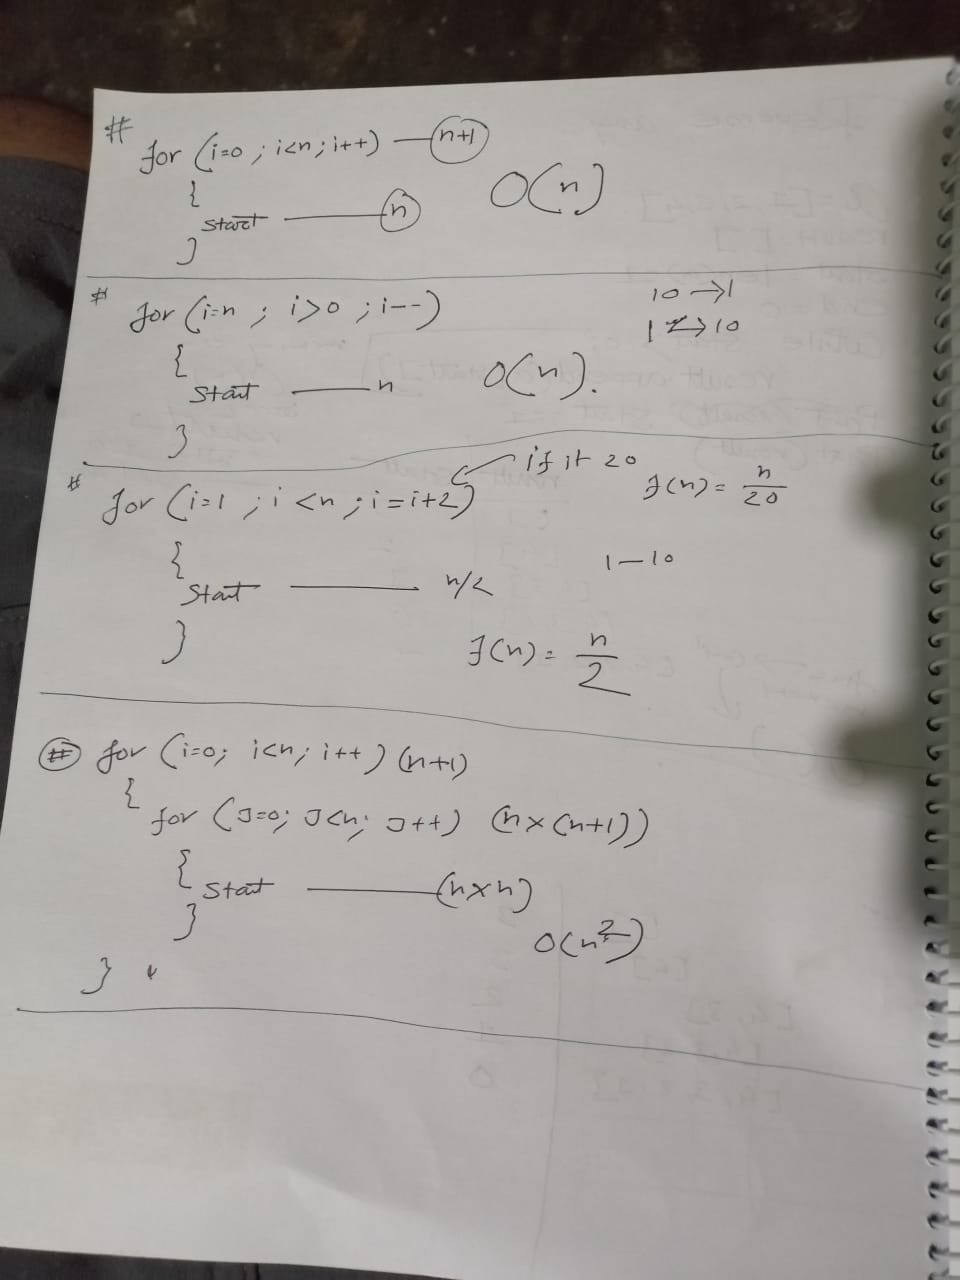 # for (i=0 ; i<n; i++) — n+1
{
Start — n
}
O(n)
# for (i=n ; i>0 ; i--)
{
Start — n
}
10 → 1
1 → 10
O(n).
# for (i=1 ; i<n ; i=i+2)
if it 20
f(n) = n/20
{
Start — n/2
}
1—10
f(n) = n/2
# for (i=0; i<n; i++) (n+1)
{
for (J=0; J<n; J++) (n×(n+1))
{
Start — (n×n)
}
O(n²)
}